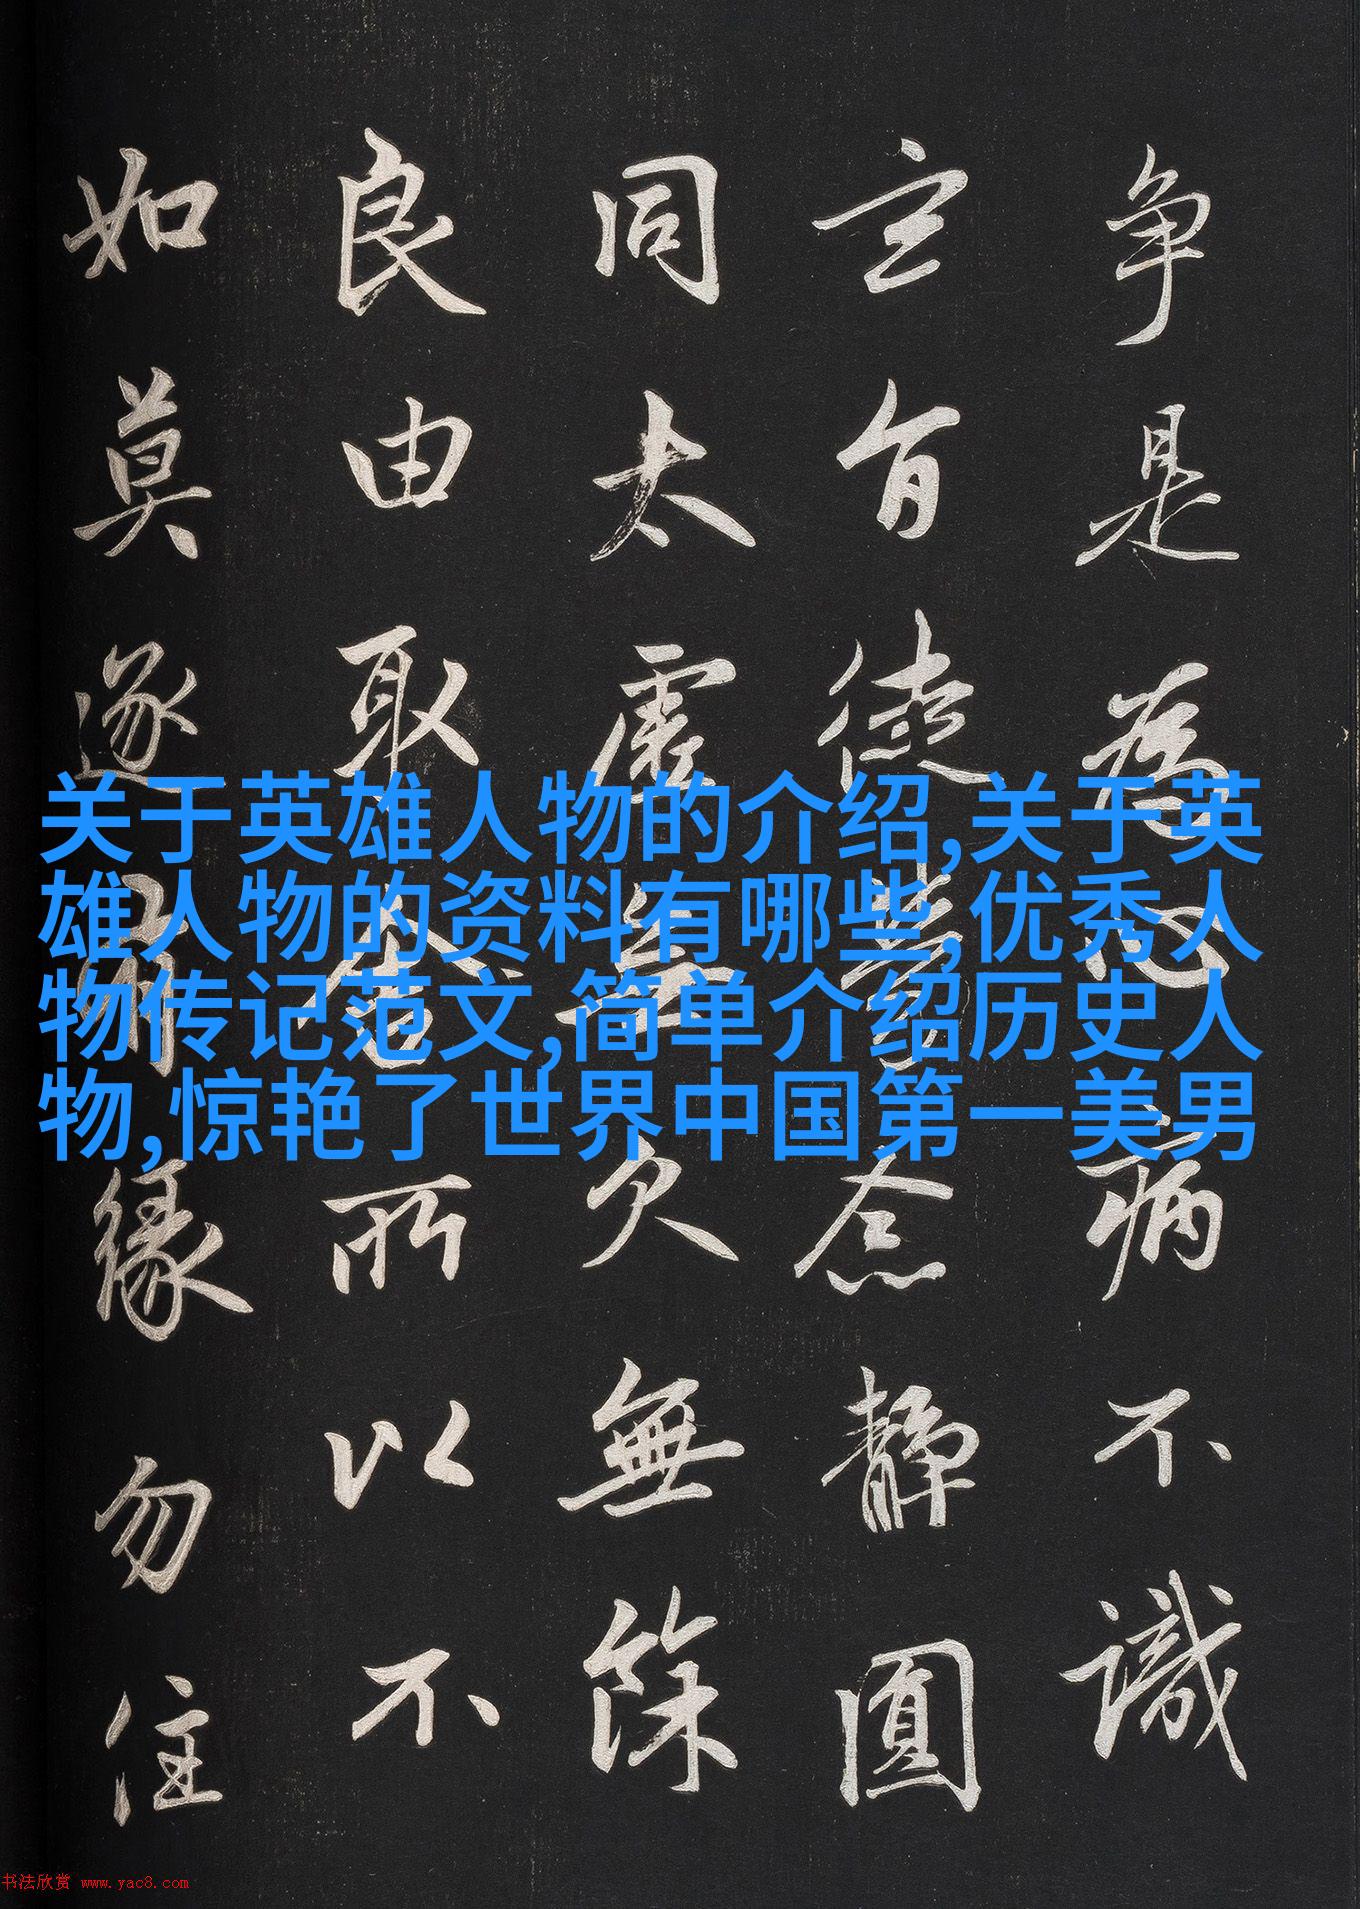 争是為心病不識
玄旨徒勞念静圓
同太虛無欠無餘
良由取捨所以不
如莫逐有緣勿住
关于英雄人物的介绍,关于英
雄人物的资料有哪些,优秀人
物传记范文,简单介绍历史人
物,惊艳了世界中国第一美男
书法欣赏 www.yac8.com